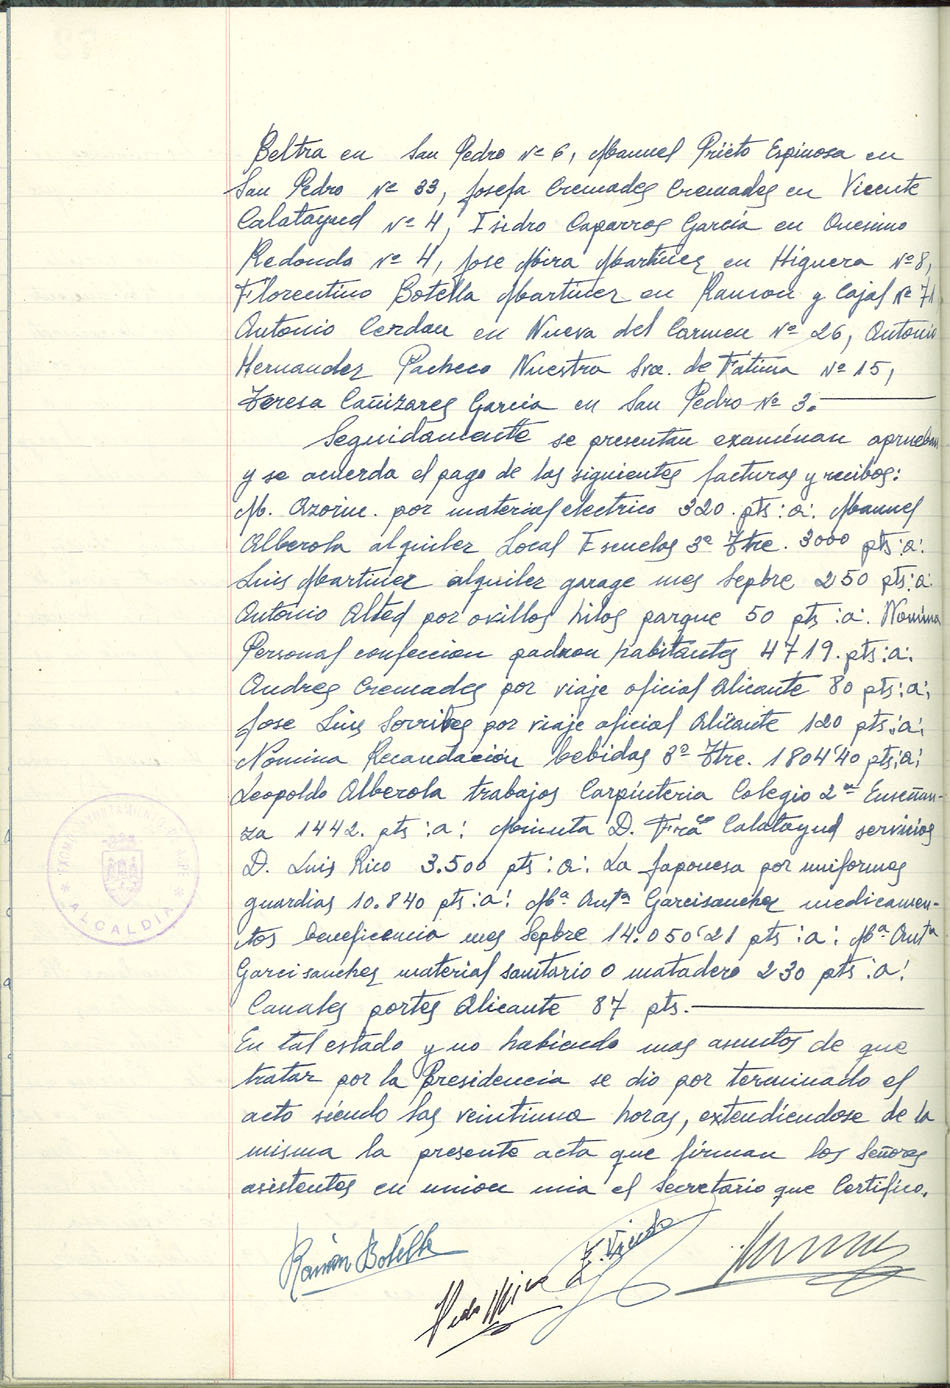 Beltra en San Pedro Nº 6, Manuel Prieto Espinosa en
San Pedro Nº 33, Josefa Cremades Cremades en Vicente
Calatayud Nº 4, Isidro Caparros García en Onesimo
Redondo Nº 4, Jose Mira Martinez en Higuera Nº 8,
Florentino Botella Martinez en Ramon y Cajal Nº 71
Antonio Cerdan en Nueva del Carmen Nº 26, Antonio
Hernandez Pacheco Nuestra Sra. de Fatima Nº 15,
Teresa Cañizares Garcia en San Pedro Nº 3.
Seguidamente se presentan examinan aprueban
y se acuerda el pago de las siguientes facturas y recibos:
M. Azorin. por material electrico 320. pts :a: Manuel
Alberola alquiler Local Escuelas 3º Ttre. 3000 pts :a:
Luis Martinez alquiler garage mes Sepbre 250 pts :a:
Antonio Alted por ovillos hilos parque 50 pts :a: Nomina
Personal confeccion padron habitantes 4719. pts :a:
Andres Cremades por viaje oficial Alicante 80 pts :a:
Jose Luis Sorribes por viaje oficial Alicante 120 pts :a:
Nomina Recaudación bebidas 3º Ttre. 1804'40 pts :a:
Leopoldo Alberola trabajos Carpinteria Colegio 2ª Enseñan-
za 1442. pts :a: Minuta D. Frâco Calatayud servicios
D. Luis Rico 3.500 pts :a: La Japonesa por uniformes
guardias 10.840 pts :a: Mª Antª Garcisanchez medicamen-
tos beneficencia mes Sepbre 14.050'21 pts :a: Mª Antª
Garcisanchez material sanitario o matadero 230 pts :a:
Canales portes Alicante 87 pts.
En tal estado y no habiendo mas asuntos de que
tratar por la Presidencia se dio por terminado el
acto siendo las veintiuna horas, extendiendose de la
misma la presente acta que firman los Señores
asistentes en union mia el Secretario que Certifico.
ALCALDIA
Ramón Botella